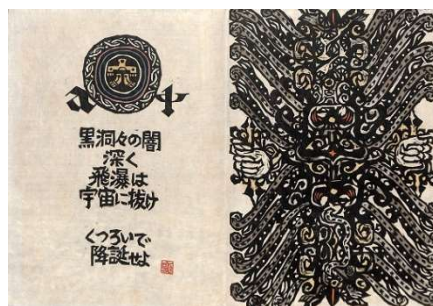 黒洞々の闇
深く
飛瀑は
宇宙に抜け
くつろいで
降誕せよ